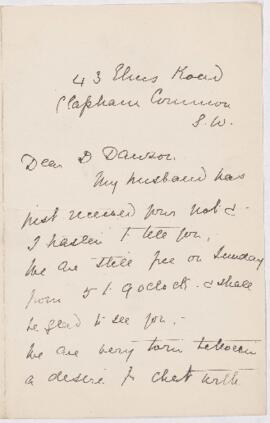 43 Elms Road
Clapham Common
S.W.
Dear D Dawson.
My husband has
just received your note &
I hasten to tell you,
We are still free on Sunday
from 5 to 9 o'clock & shall
be glad to see you, -
We are very torn between
a desire to chat with